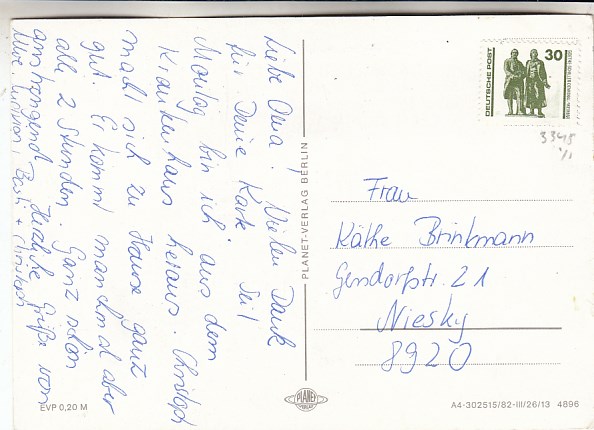 Liebe Oma! Vielen Dank
für Deine Karte. Seit
Montag bin ich aus dem
Krankenhaus heraus. Christoph
macht sich zu Hause ganz
gut. Er kommt manchmal aber
alle 2 Stunden. Ganz schön
anstrengend. Herzliche Grüße von
Basti + Christoph
EVP 0,20 M
PLANET-VERLAG BERLIN
PLANET
VERLAG
DEUTSCHE POST
30
3348
Frau
Käthe Brinkmann
Gendorfstr. 21
Niesky
8920
A4-302515/82-III/26/13 4896